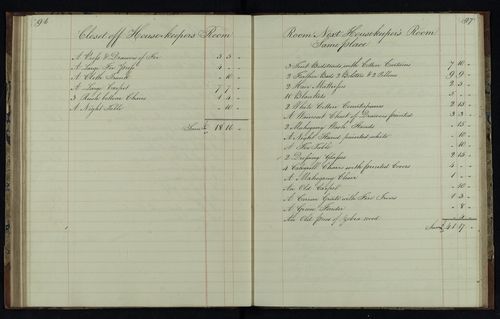 96
Closet off Housekeepers Room
A Press & Drawers of Fir 3 3 -
A Large Fir Press
A Cloth Trunk - 10 -
A Large Carpet 7 7 -
3 Rush bottom Chairs
A Night Table - 10 -
Sum £ 18 16 -
97
Room Next Housekeeper's Room
Same place
2 Feather Beds 2 Bolsters & 2 Pillows 9 9 -
2 Hair Mattresses
10 Blankets
2 White Cotton Counterpanes 2 15 -
A Wainscot Chest of Drawers painted 3 3 -
2 Mahogany Wash Stands - 15 -
A Night Stand painted white - 10 -
A Fir Table - 10 -
2 Dressing Glasses 2 15 -
4 Chairs with printed Covers 4 - -
A Mahogany Chair 1 - -
An Old Carpet - 10 -
A Grate with Fire Irons
A Green Fender - 8 -
An Old piece of Zebra wood
Sum £ 41 17 -